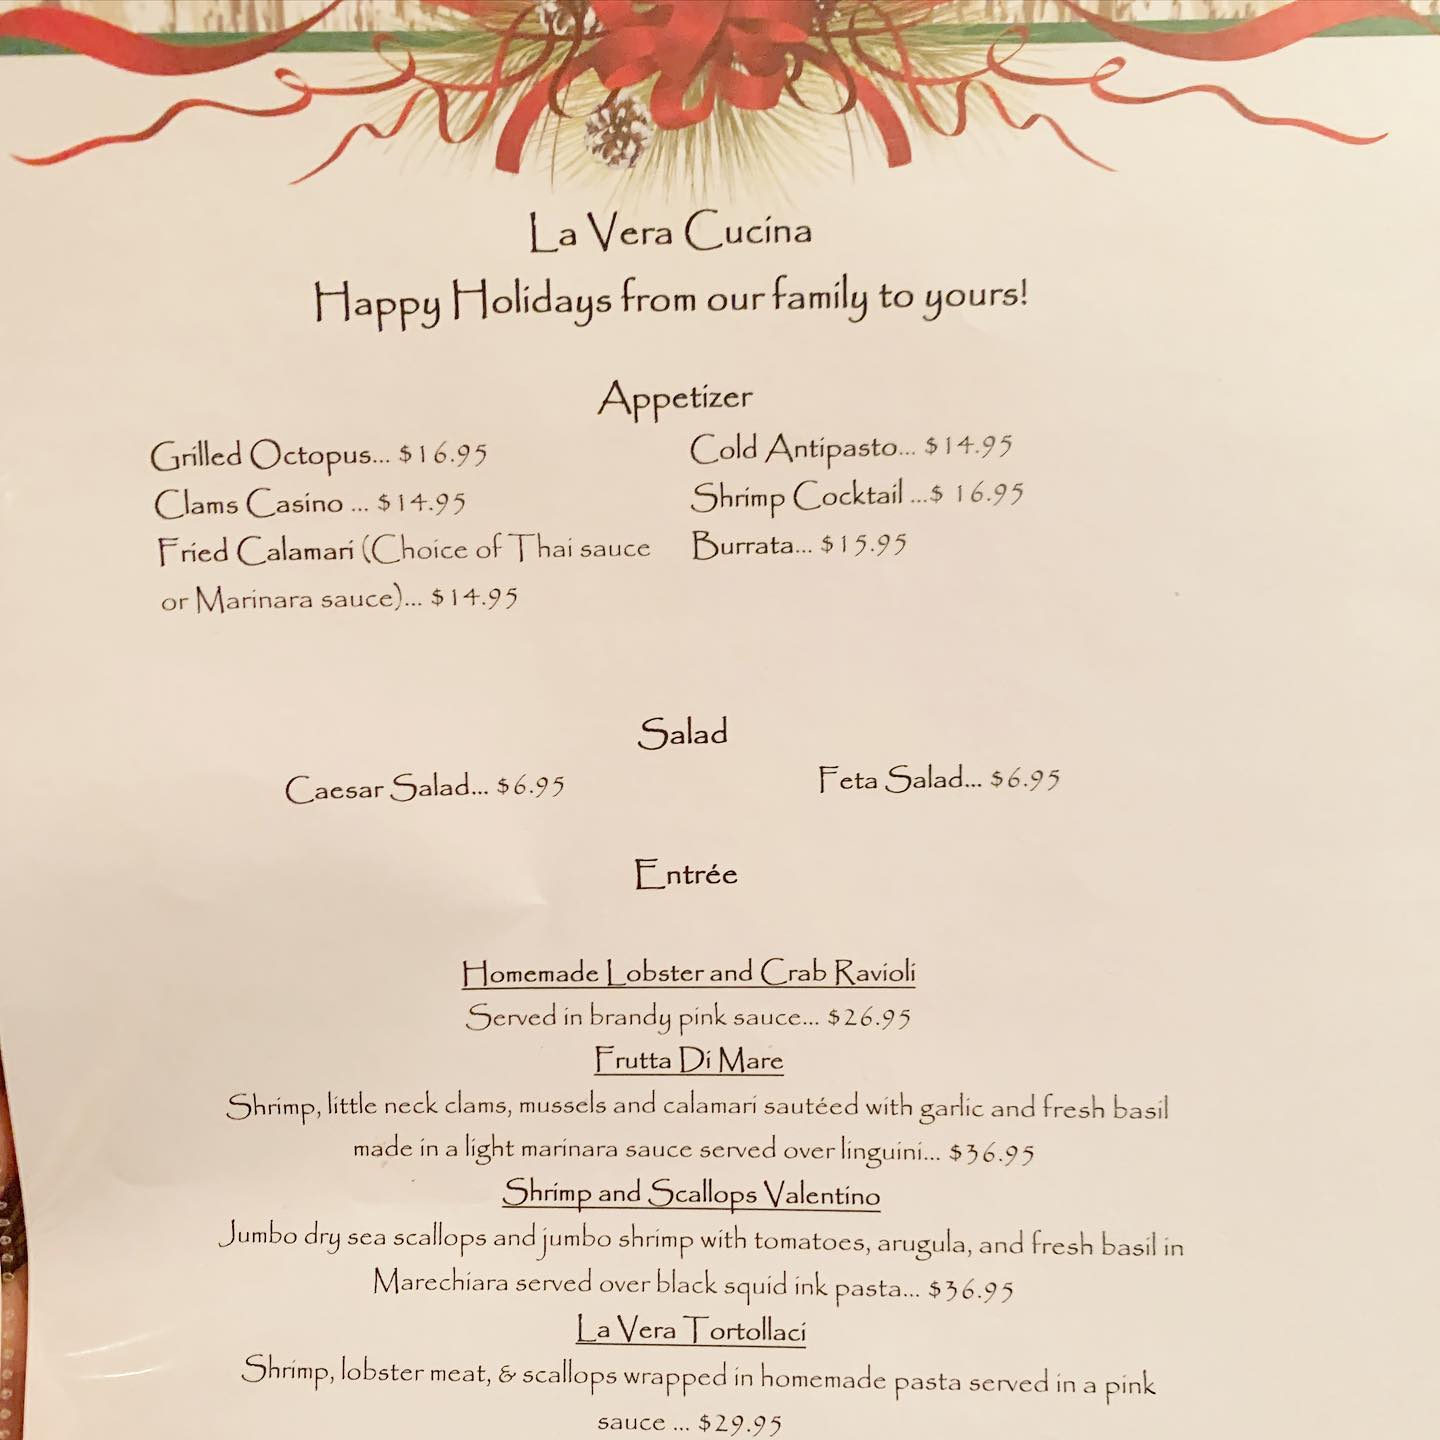 La Vera Cucina
Happy Holidays from our family to yours!
Appetizer
Grilled Octopus... $16.95
Clams Casino ... $14.95
Fried Calamari (Choice of Thai sauce
or Marinara sauce)... $14.95
Cold Antipasto... $14.95
Shrimp Cocktail ...$ 16.95
Burrata... $15.95
Salad
Caesar Salad... $6.95
Feta Salad... $6.95
Entrée
Homemade Lobster and Crab Ravioli
Served in brandy pink sauce... $26.95
Frutta Di Mare
Shrimp, little neck clams, mussels and calamari sautéed with garlic and fresh basil
made in a light marinara sauce served over linguini... $36.95
Shrimp and Scallops Valentino
Jumbo dry sea scallops and jumbo shrimp with tomatoes, arugula, and fresh basil in
Marechiara served over black squid ink pasta... $36.95
La Vera Tortollaci
Shrimp, lobster meat, & scallops wrapped in homemade pasta served in a pink
sauce ... $29.95